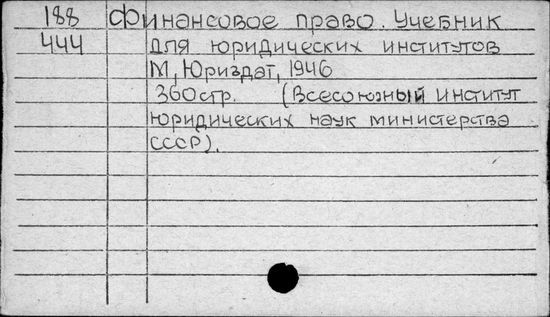 188 Финансовое право. Учебник
444 для юридических институтов
М, Юриздат, 1946
360стр. (Всесоюзный институт
юридических наук министерства
СССР).